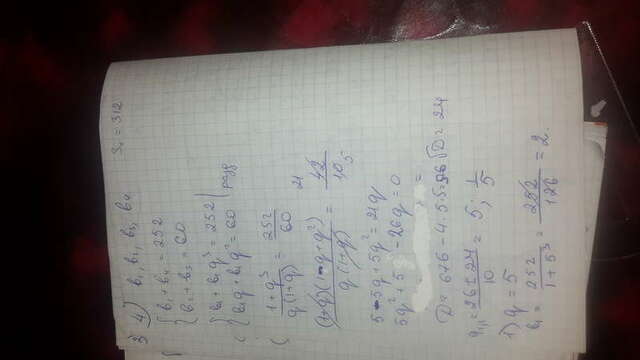 3 4) b₁, b₂, b₃, b₄ S₄ = 312
{ b₁ + b₄ = 252
{ b₂ + b₃ = 60
{ b₁ + b₁q³ = 252
{ b₁q + b₁q² = 60 | разд
(1+q³)/(q(1+q)) = 252/60
((1+q)(1-q+q²))/(q(1+q)) = 42/10 21 5
5-5q+5q² = 21q
5q²+5-26q = 0
D = 676-4·5·5= √D = 24
q₁,₂ = (26±24)/10 = 5; 1/5
1) q = 5
b₁ = 252/(1+5³) = 252/126 = 2.